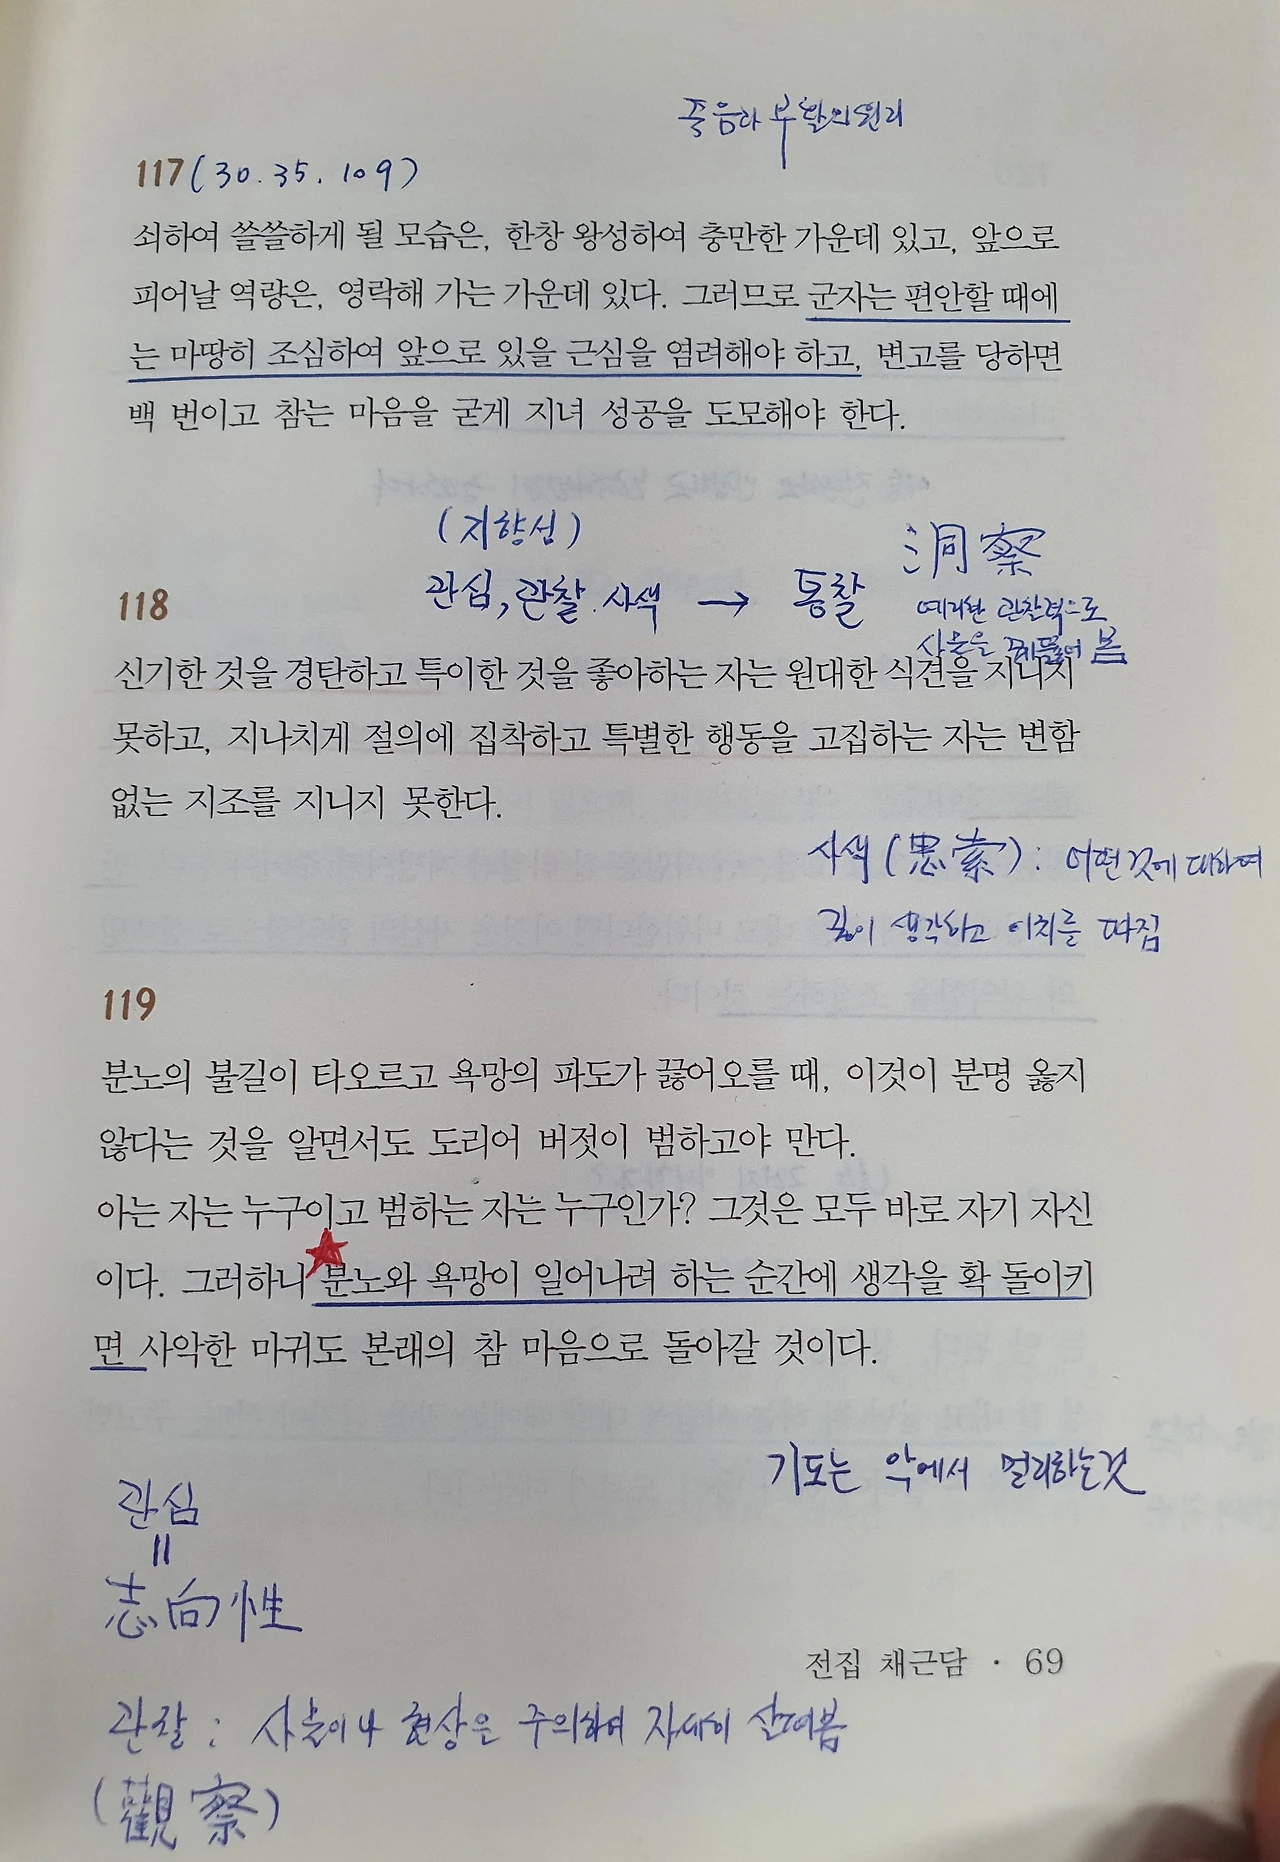 죽음과 부활의 원리
117 (30. 35. 109)
쇠하여 쓸쓸하게 될 모습은, 한창 왕성하여 충만한 가운데 있고, 앞으로
피어날 역량은, 영락해 가는 가운데 있다. 그러므로 군자는 편안할 때에
는 마땅히 조심하여 앞으로 있을 근심을 염려해야 하고, 변고를 당하면
백 번이고 참는 마음을 굳게 지녀 성공을 도모해야 한다.
(지향성)
관심, 관찰. 사색 → 통찰 洞察
예리한 관찰력으로
사물을 꿰뚫어 봄
118
신기한 것을 경탄하고 특이한 것을 좋아하는 자는 원대한 식견을 지니지
못하고, 지나치게 절의에 집착하고 특별한 행동을 고집하는 자는 변함
없는 지조를 지니지 못한다.
사색(思索): 어떤 것에 대하여
깊이 생각하고 이치를 따짐
119
분노의 불길이 타오르고 욕망의 파도가 끓어오를 때, 이것이 분명 옳지
않다는 것을 알면서도 도리어 버젓이 범하고야 만다.
아는 자는 누구이고 범하는 자는 누구인가? 그것은 모두 바로 자기 자신
이다. 그러하니 분노와 욕망이 일어나려 하는 순간에 생각을 확 돌이키
면 사악한 마귀도 본래의 참 마음으로 돌아갈 것이다.
기도는 악에서 멀리하는것
관심
=
志向性
전집 채근담 · 69
관찰 : 사물이나 현상은 주의하여 자세히 살펴봄
(觀察)